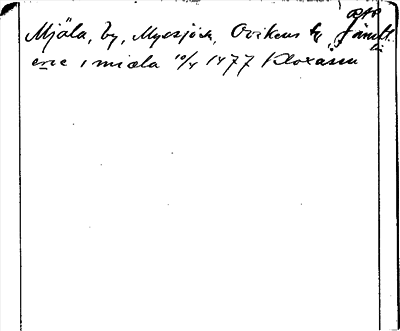 Mjäla, by, Myssjöck, Ovikens Jämtl.
eric i miæla 10/4 1477 Kloxåsen